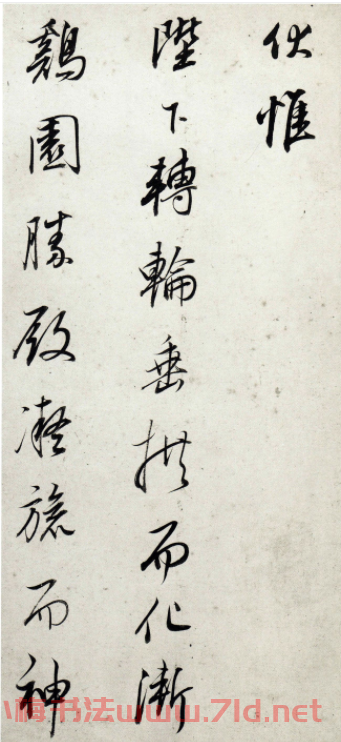 伏惟
陛下轉輪垂拱而化漸
鷄園勝殿凝旒而神
小梅书法www.7ld.net